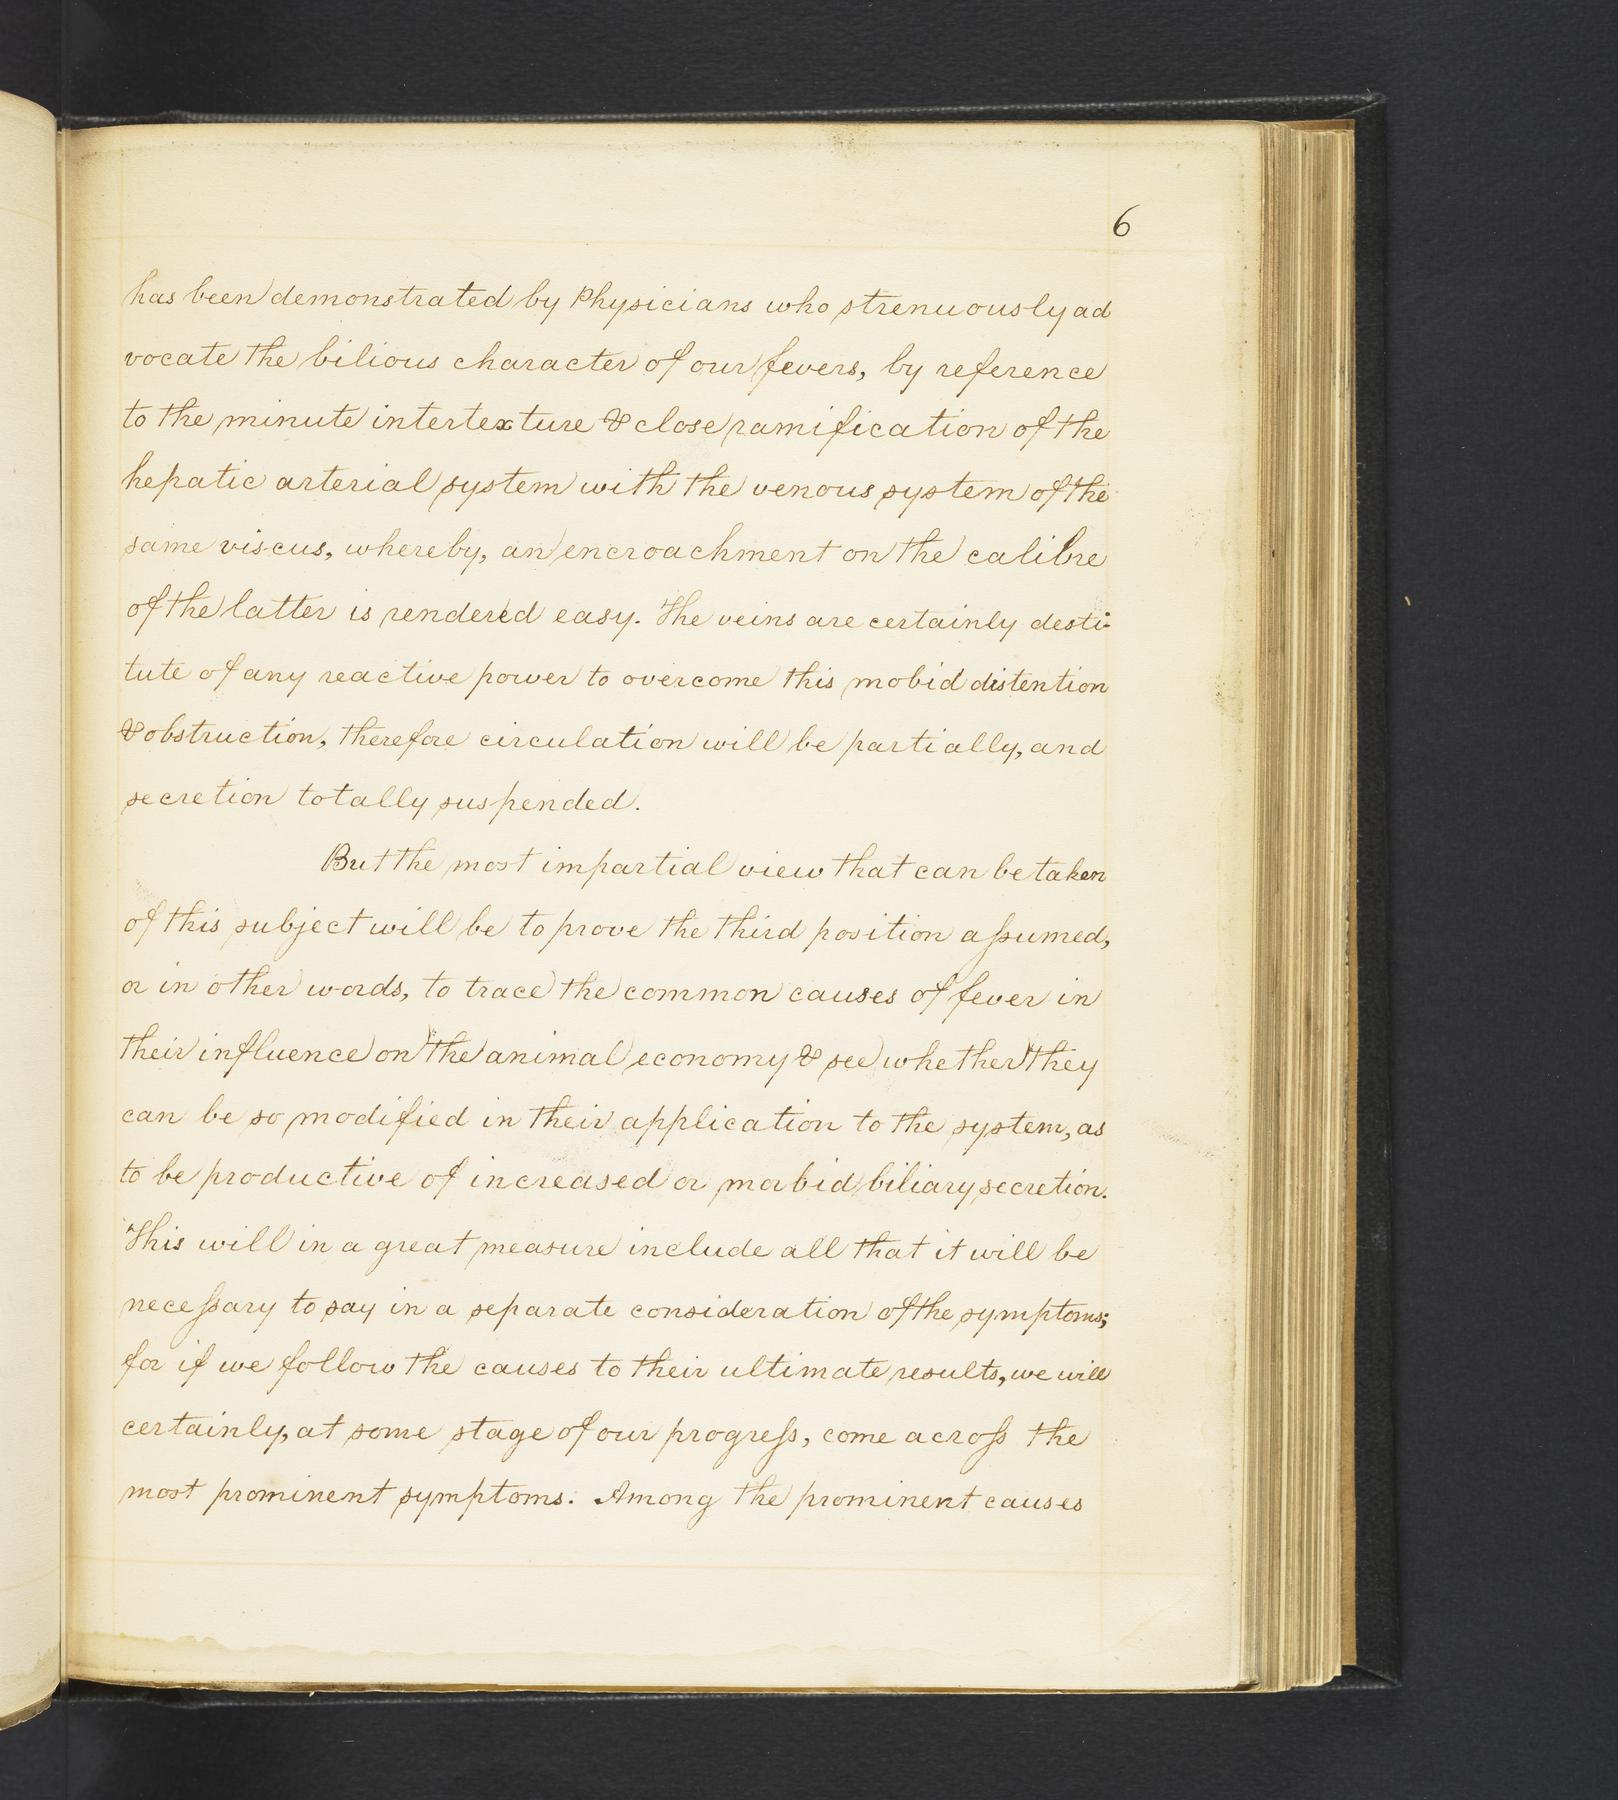 6
has been demonstrated by Physicians who strenuously ad
vocate the bilious character of our fevers, by reference
to the minute intertexture & close ramification of the
hepatic arterial system with the venous system of the
same viscus, whereby, an encroachment on the calibre
of the latter is rendered easy. The veins are certainly desti-
tute of any reactive power to overcome this mobid distention
& obstruction, therefore circulation will be partially, and
secretion totally suspended.
But the most impartial view that can be taken
of this subject will be to prove the third position assumed,
or in other words, to trace the common causes of fever in
their influence on the animal economy & see whether they
can be so modified in their application to the system, as
to be productive of increased or morbid biliary secretion.
This will in a great measure include all that it will be
necessary to say in a separate consideration of the symptoms;
for if we follow the causes to their ultimate results, we will
certainly, at some stage of our progress, come across the
most prominent symptoms. Among the prominent causes